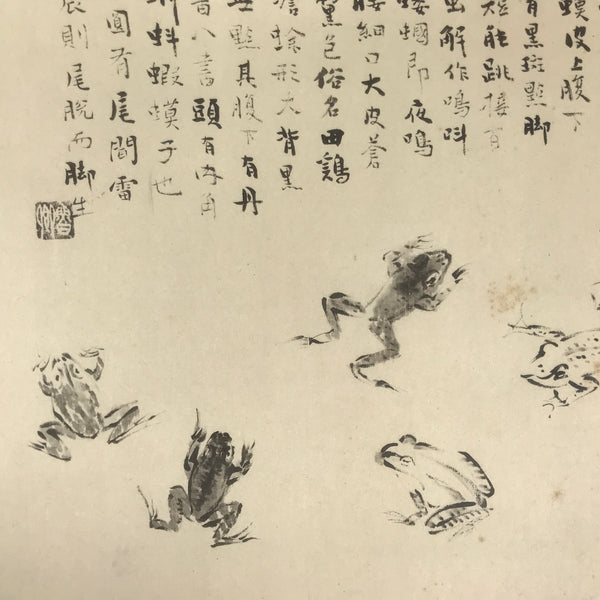 蟆皮上腹下
有黑斑點脚
短能跳接百
解作鳴
蟈即夜鳴
腰細口大皮蒼
色俗名田鷄
蟾蜍形大背黑
點其腹下有丹
八書頭有肉角
蚪蝦蟆子也
圓有尾聞雷
則尾脫而脚生